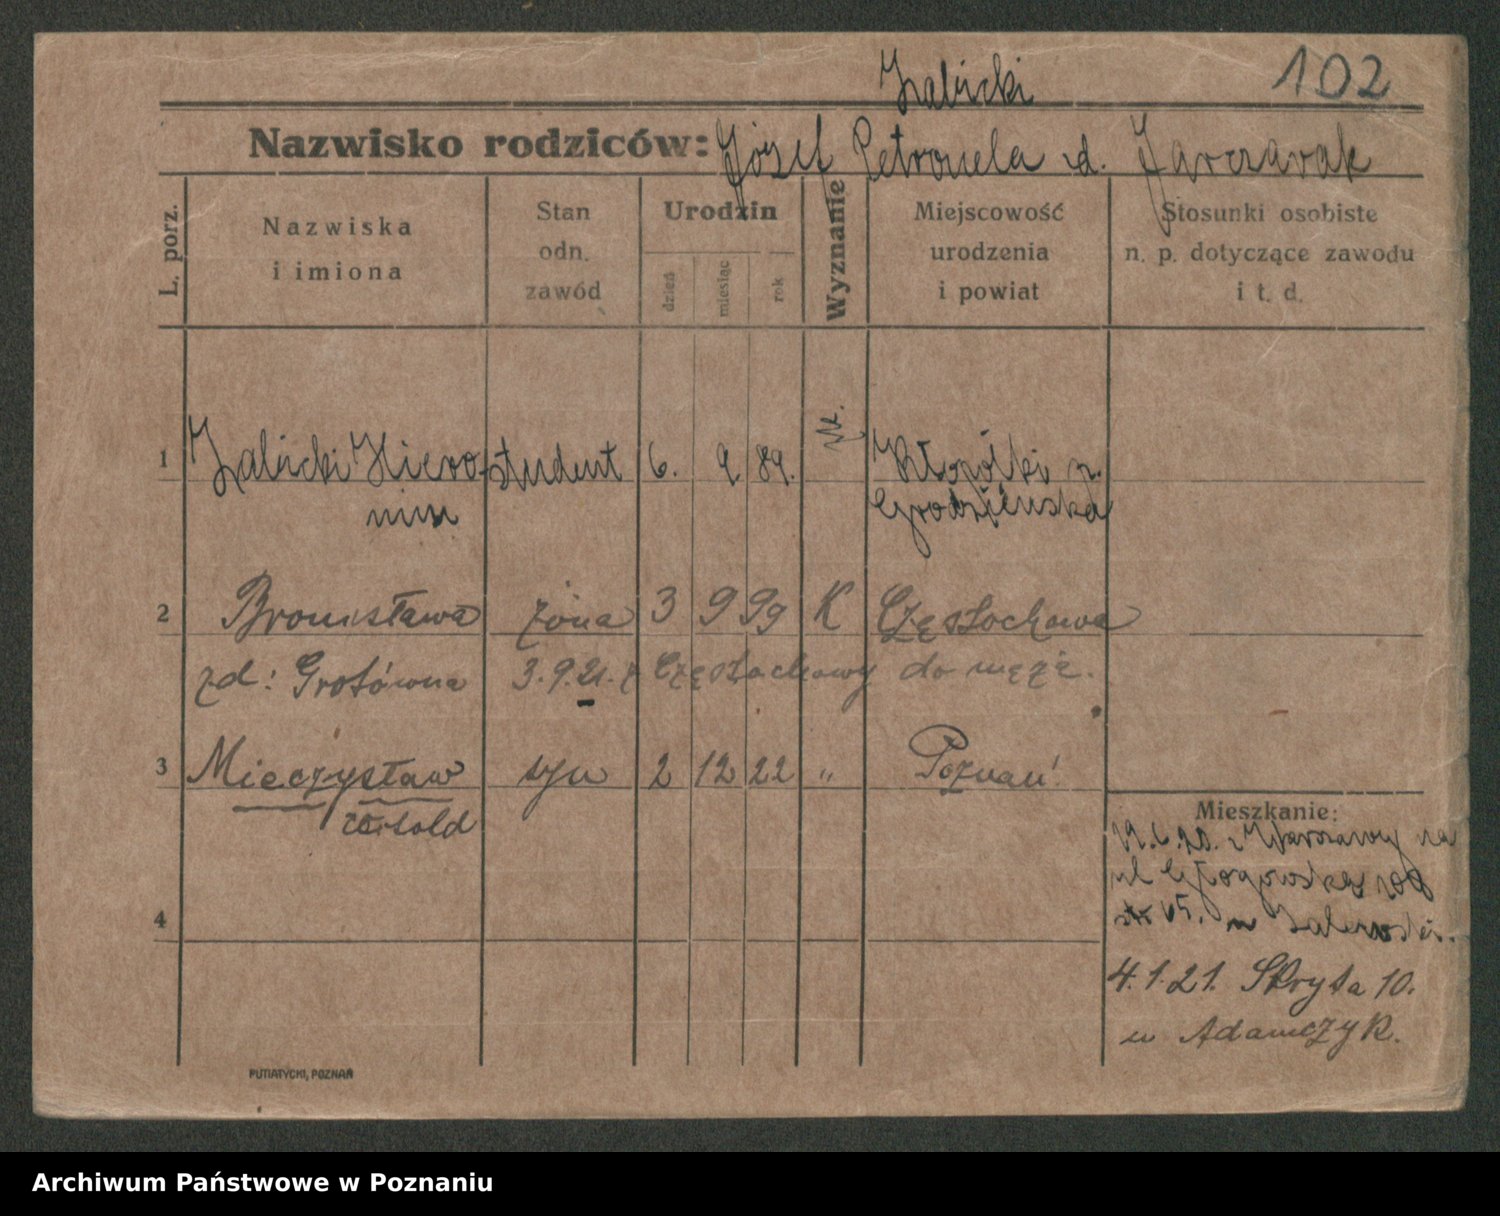 102
Zalicki
Nazwisko rodziców: Józef Petronela d. Jarczarak
L. porz.
Nazwiska i imiona
Stan odn. zawód
Urodzin
dzień
miesiąc
rok
Wyznanie
Miejscowość urodzenia i powiat
Stosunki osobiste n. p. dotyczące zawodu i t. d.
1 Zalicki Hiero- student 6. 9 89.
nim Grodzieńska
2 Bronisława żona 3 9 99 K Częstochowa
zd: Grotówna 3.9.21. z Częstochowy do męża.
3 Mieczysław syn 2 12 22 " Poznań
Witold
4
Mieszkanie:
19.6.20. z Warszawy na
ul Głogowską 108
u Zalewski.
4.1.21. Skryta 10.
u Adamczyk.
PUTIATYCKI, POZNAŃ
Archiwum Państwowe w Poznaniu